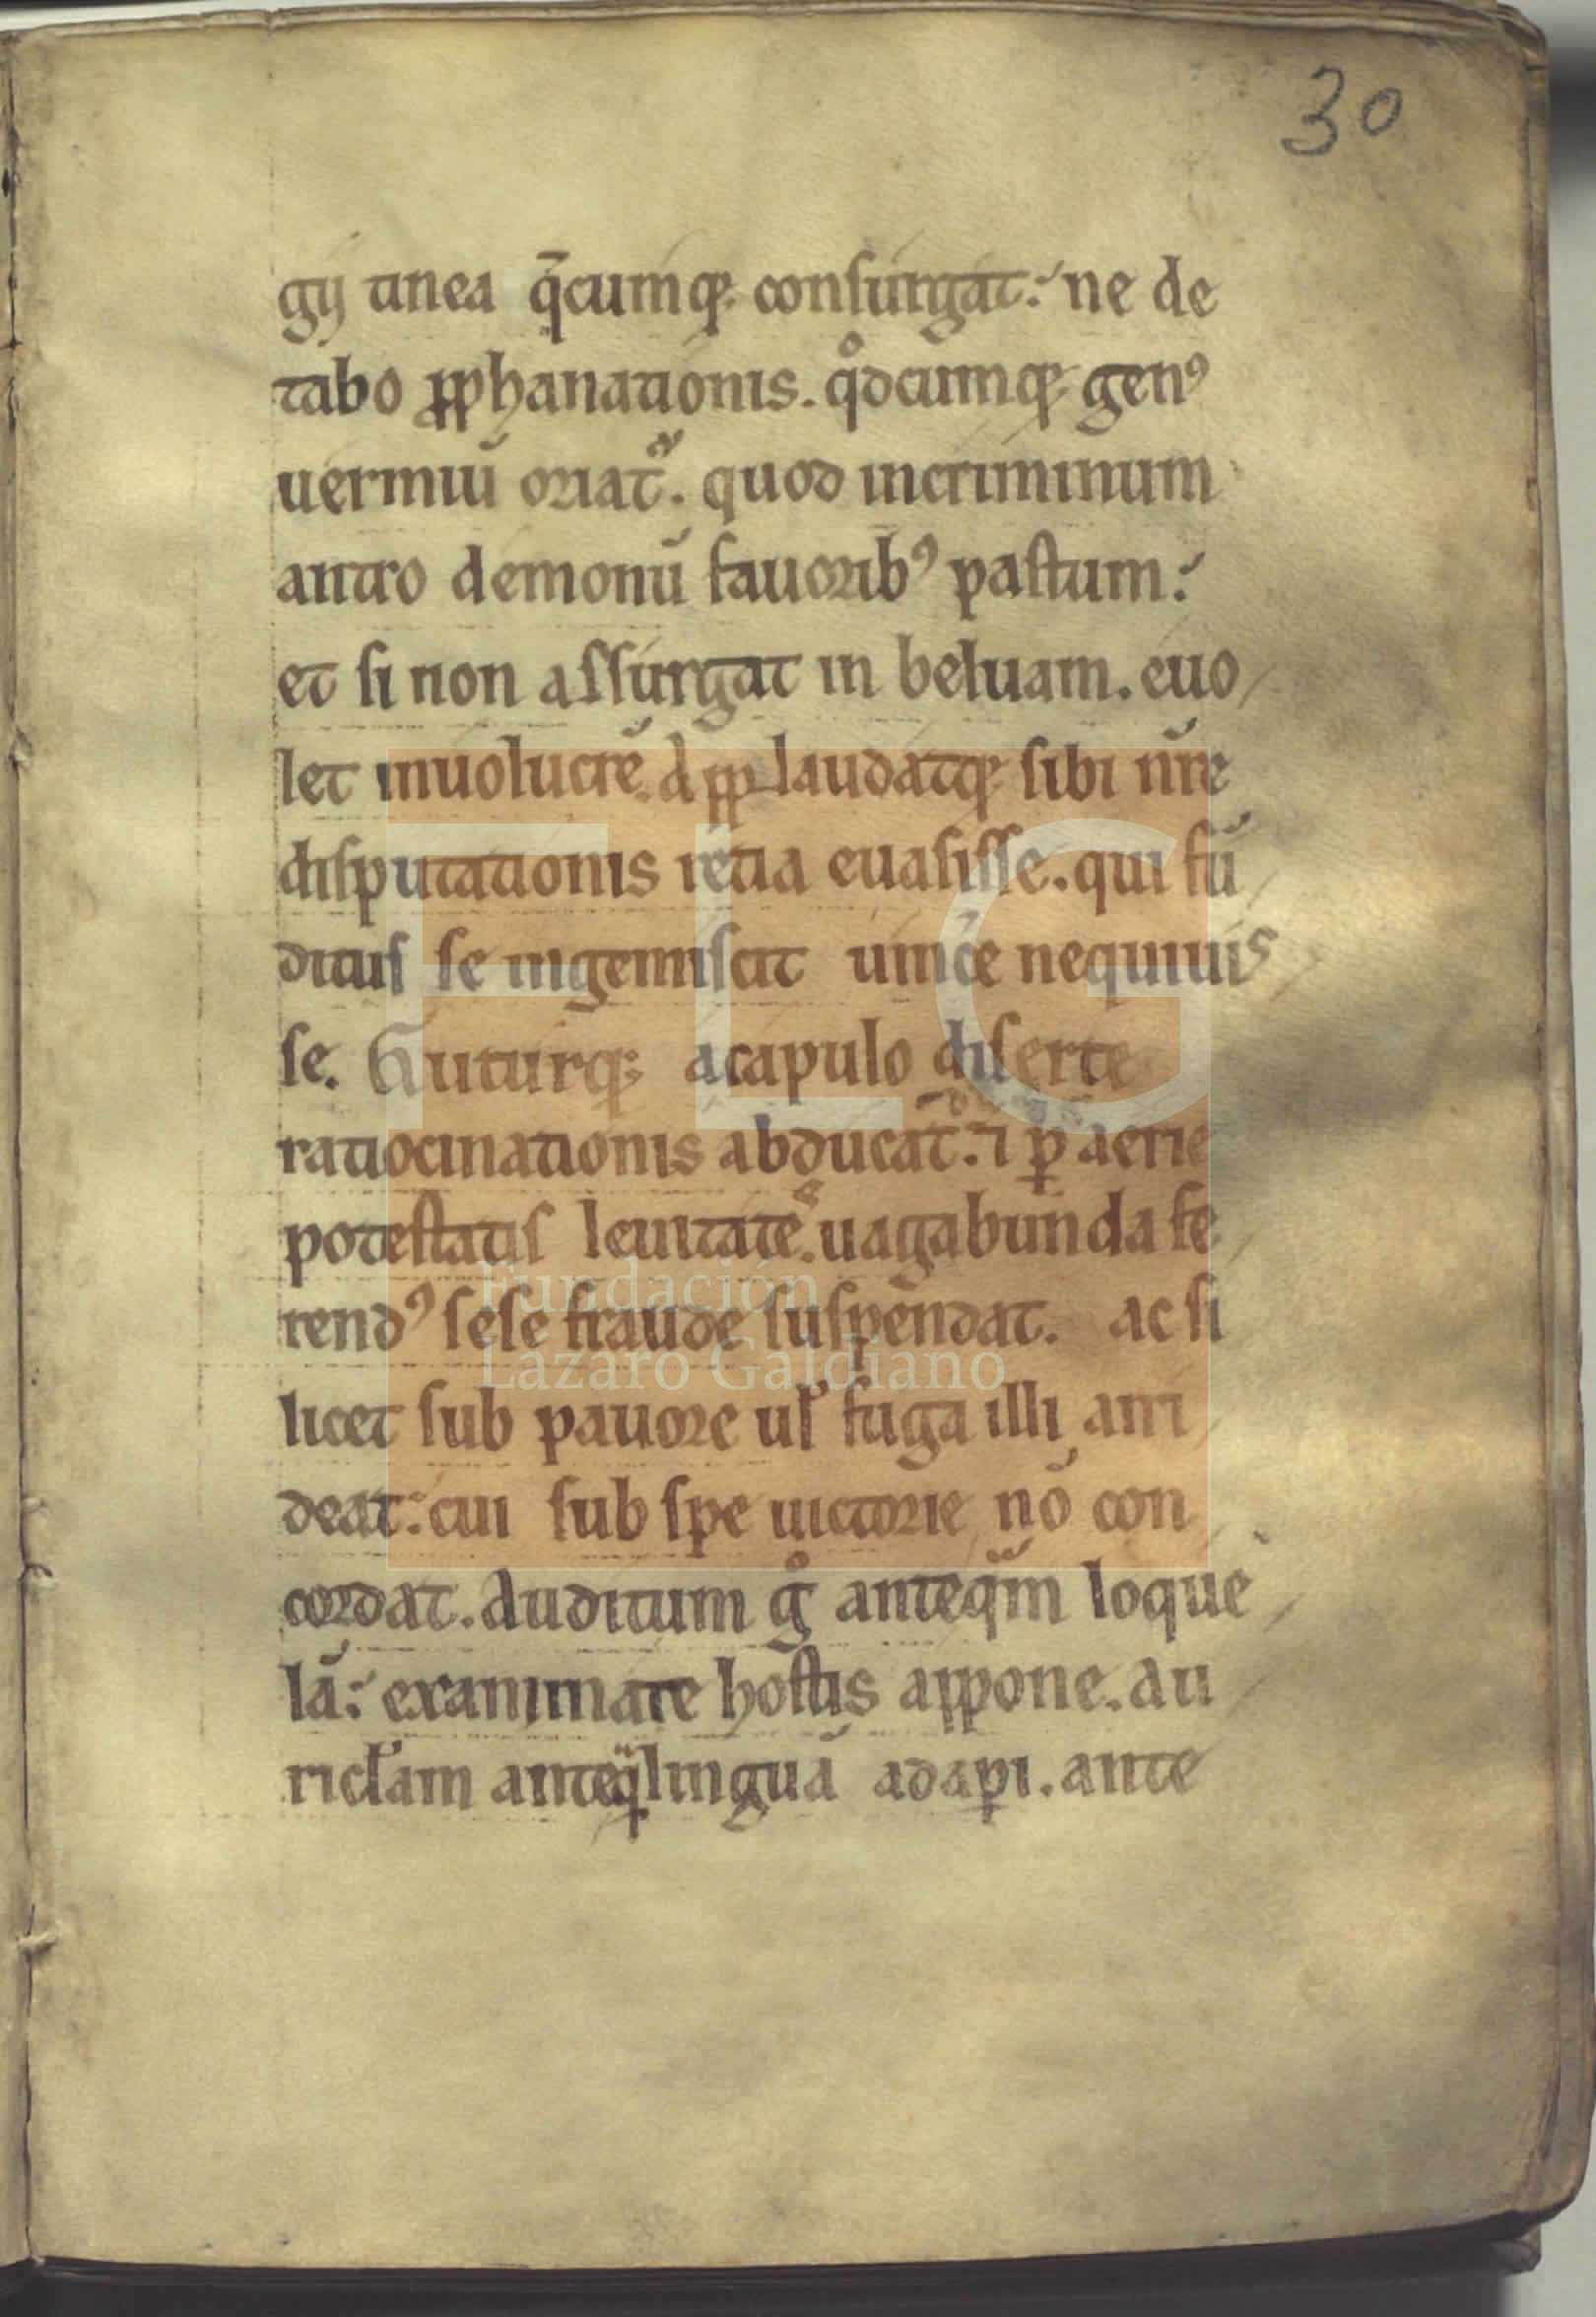 30
gij tinea q̄cumq; consurgat: ne de
tabo ꝓphanationis. qͦdcumq; genꝰ
uermiū oriat᷑. quod incriminum
antro demonū fauoribꝰ pastum:
et si non assurgat in beluam. euo
let inuolucrē. disputationis retia euasisse. qui fū
ditus se ingemiscit uince nequiuis
se. Nuturq; acapulo diserte
ratiocinationis abducat᷑. ⁊ ꝑ aerie
potestatis leuitatē. uagabunda fe
rendꝰ sese fraude suspendat. ac si
licet sub pauore ul̓ fuga illi arri
deat: cui sub spe uictorie nō con
cordat. Auditum gͦ anteq̄m loque
lā: examinare hostis appone. au
ricl̓am anteq̄ linguā adaꝑi. ante
FLG
Fundación
Lázaro Galdiano